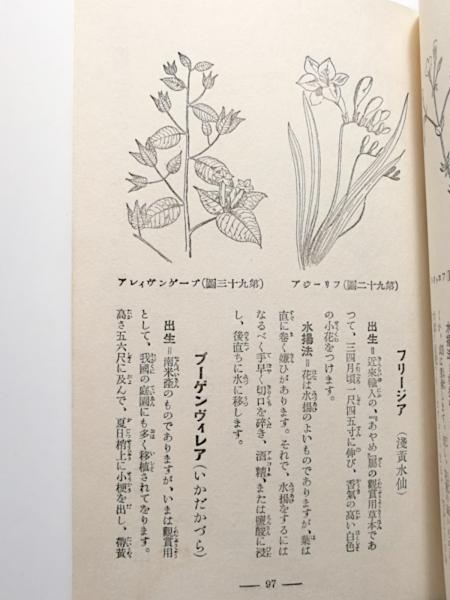 (第九十二圖)フリージア
(第九十三圖)ブーゲンヴィレア
フリージア(淺黃水仙)
出生=近來輸入の、『あやめ』屬の觀賞用草本であ
つて、三四月頃一尺四五寸に伸び、香氣の高い白色
の小花をつけます。
水揚法=花は水揚のよいものでありますが、葉は
直に卷く嫌ひがあります。それで、水揚をするには
なるべく手早く切口を碎き、酒精、または鹽酸に浸
し、後直ちに水に移します。
ブーゲンヴィレア(いかだかづら)
出生=南米產のものでありますが、いまは觀賞用
として、我國の庭園にも多く移植されてをります。
高さ五六尺に及んで、夏日梢上に小梗を出し、帶黃
— 97 —